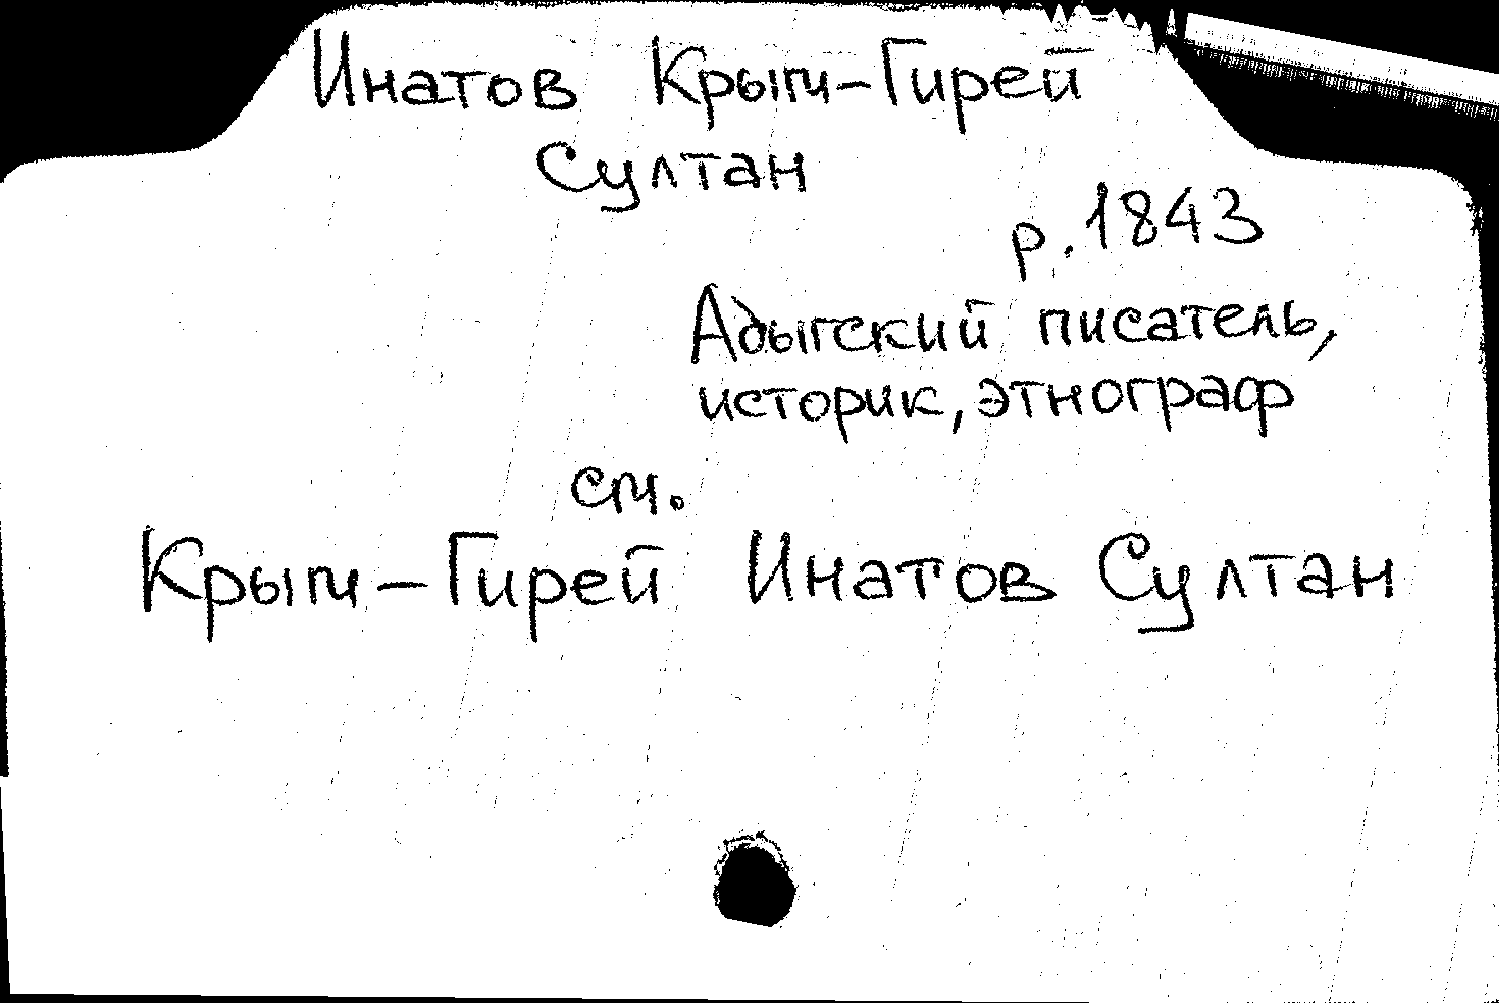 Инатов Крым-Гирей
Султан
р. 1843
Адыгский писатель,
историк, этнограф
см.
Крым-Гирей Инатов Султан